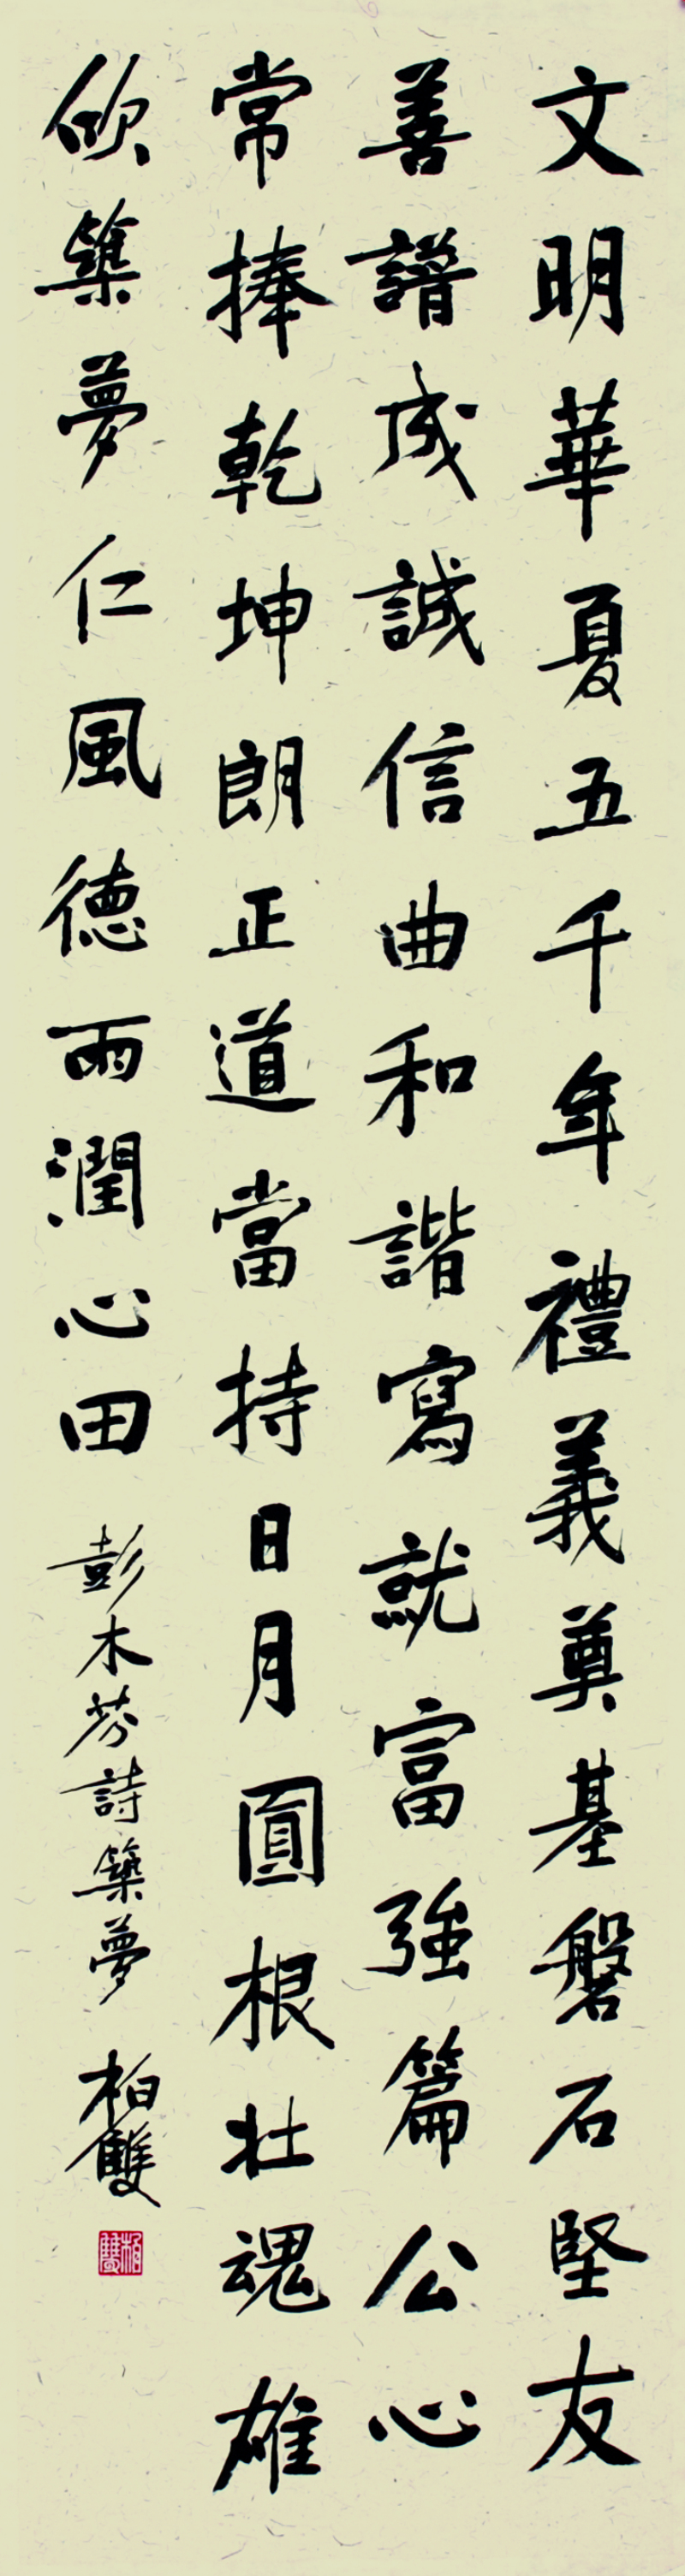 文明華夏五千年禮義奠基磐石堅友
善譜成誠信曲和諧寫就富強篇公心
常捧乾坤朗正道當持日月圓根壯魂雄
欣築夢仁風德雨潤心田 彭木芬詩築夢 柏雙
柏雙